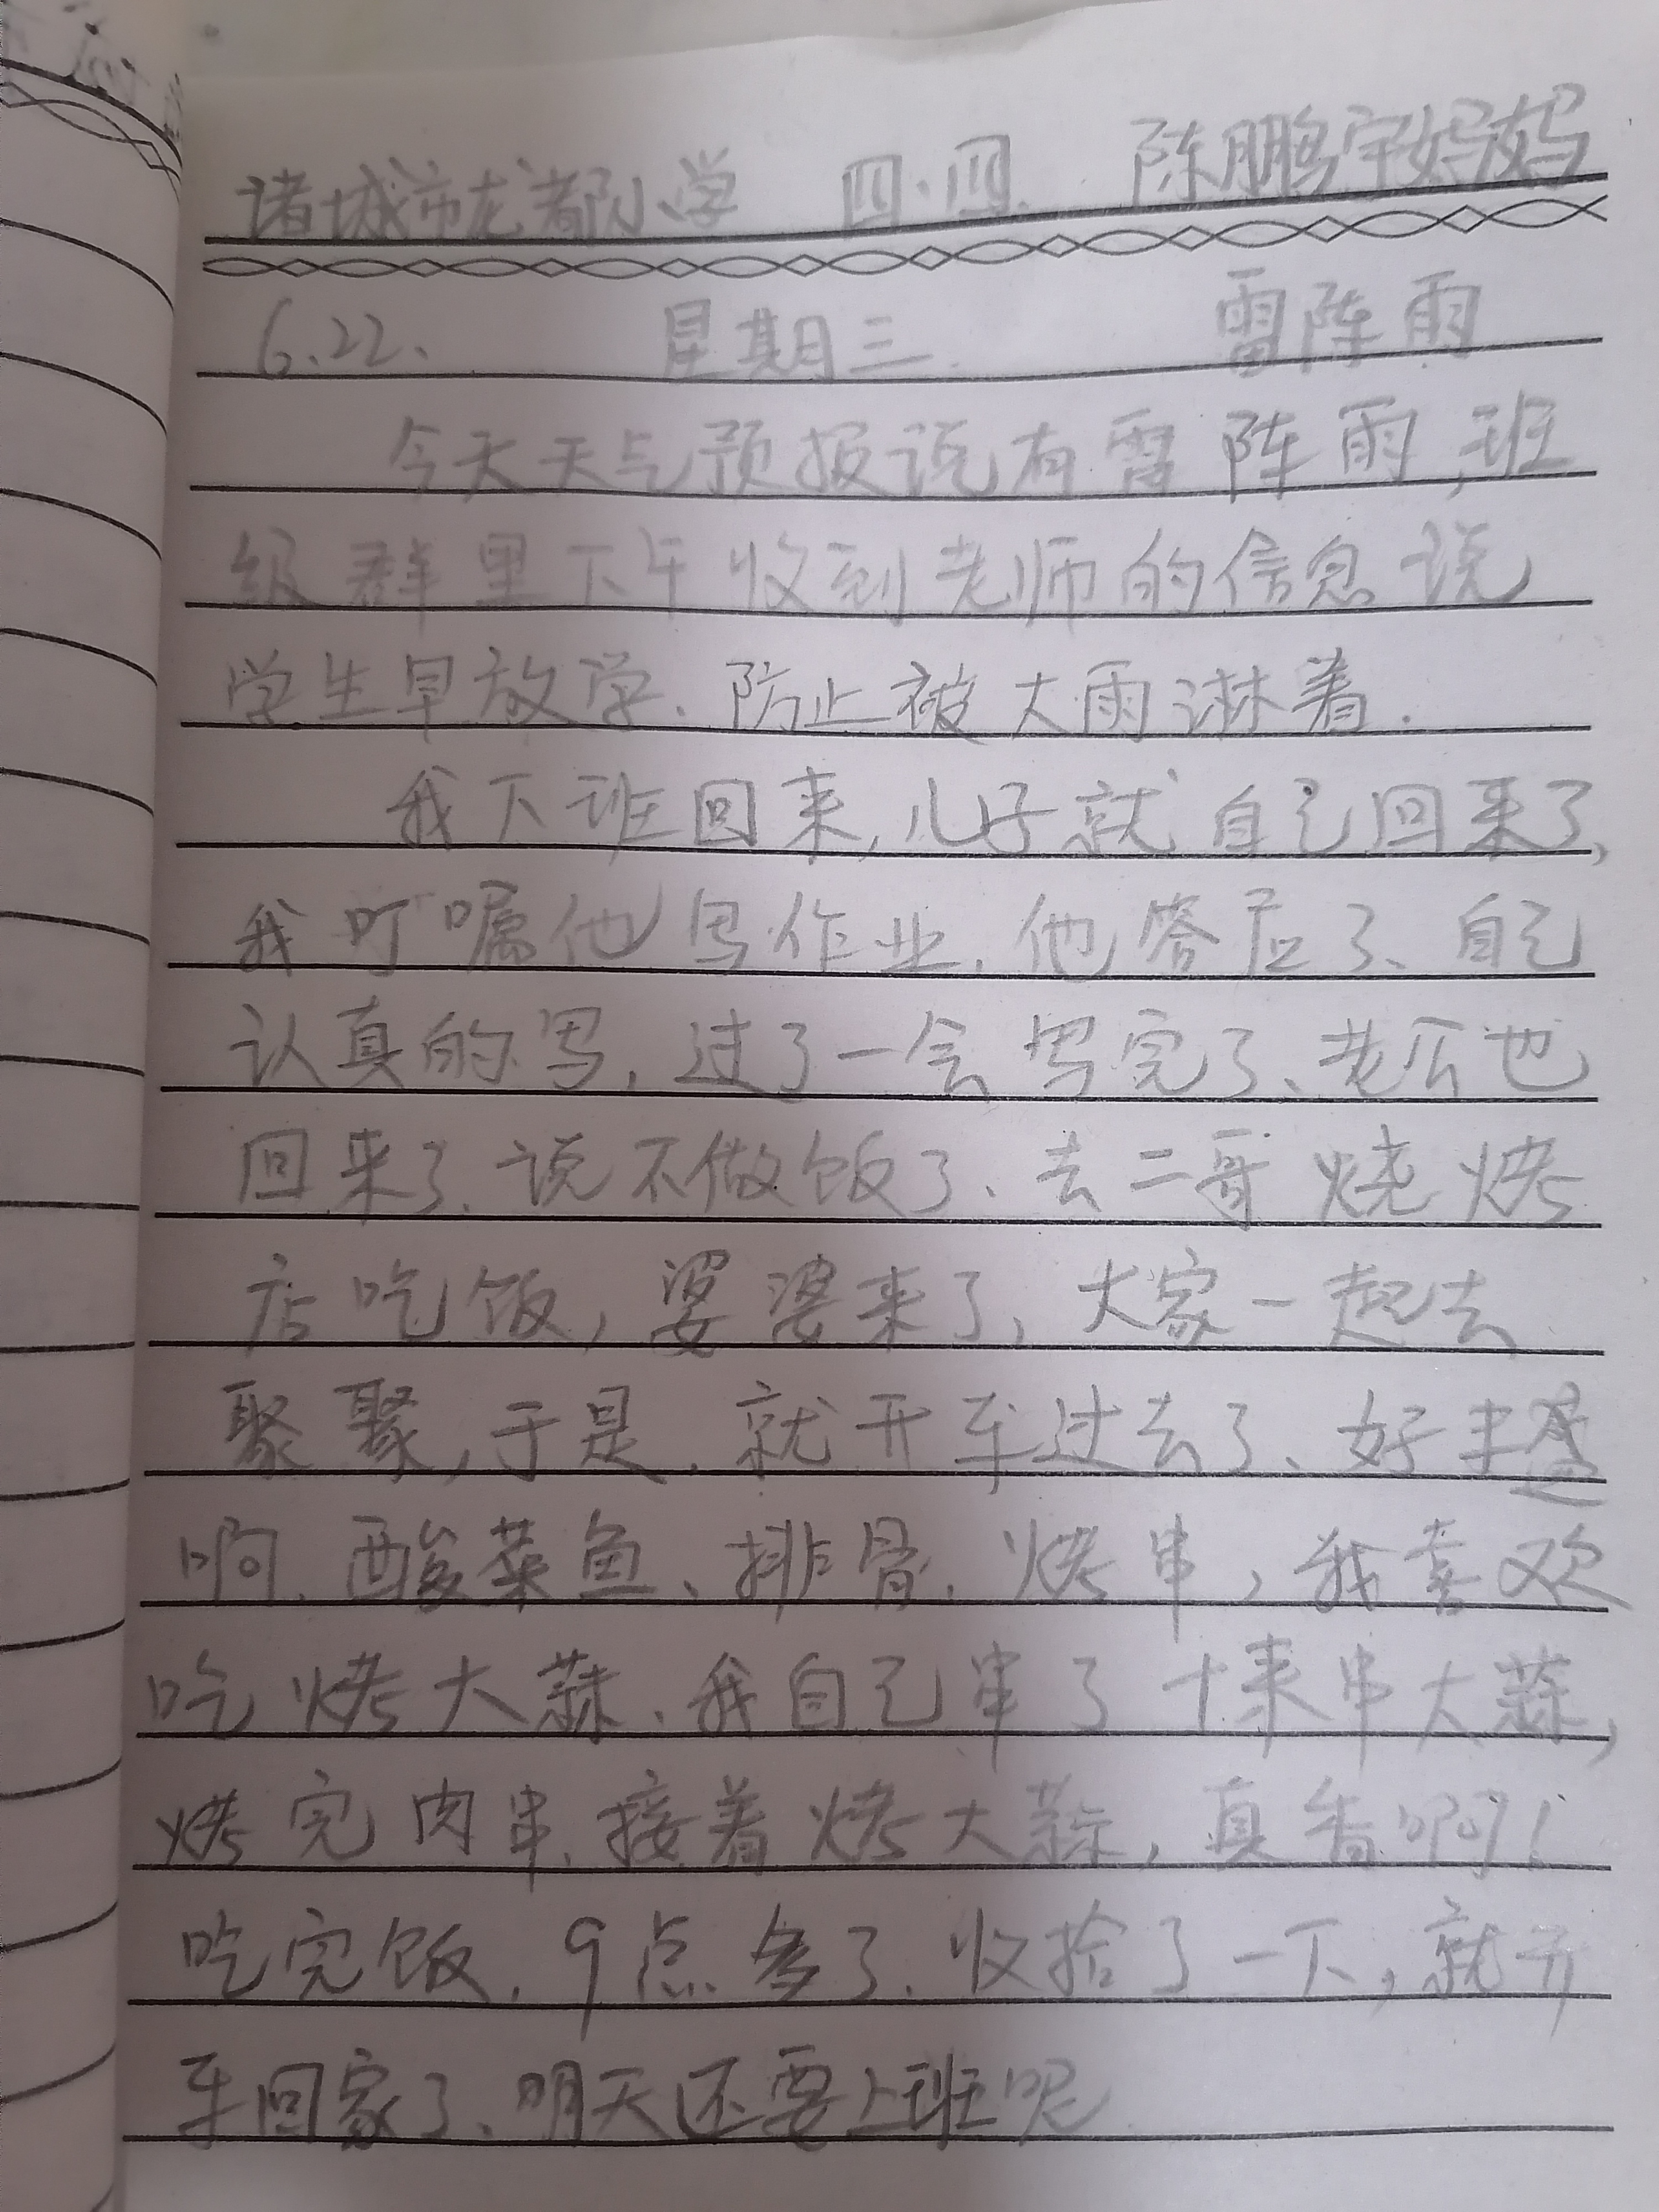 诸城市龙都小学 四.四. 陈鹏宇妈妈
6.22. 星期三. 雷阵雨
今天天气预报说有雷阵雨,班
级群里下午收到老师的信息说
学生早放学、防止被大雨淋着.
我下班回来,儿子就自己回来了,
我叮嘱他写作业.他答应了、自己
认真的写,过了一会写完了、老公也
回来了.说不做饭了、去二哥烧烤
店吃饭,婆婆来了,大家一起去
聚聚,于是.就开车过去了、好丰盛
啊.酸菜鱼、排骨.烤串,我喜欢
吃烤大蒜.我自己串了十来串大蒜,
烤完肉串.接着烤大蒜,真香啊!
吃完饭.9点多了.收拾了一下,就开
车回家了、明天还要上班呢.